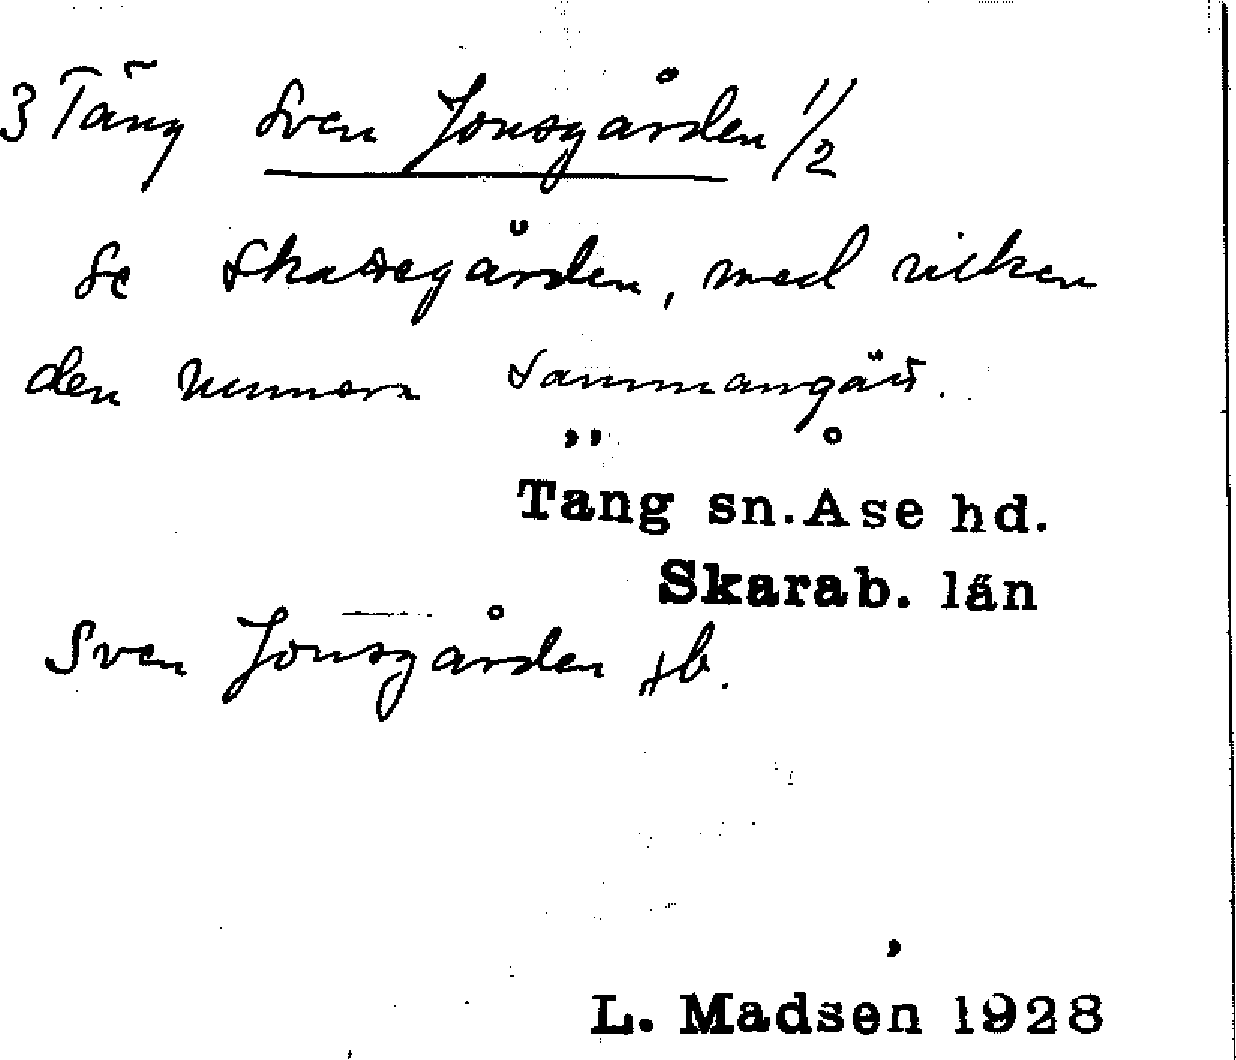 3 Täng Sven Jonsgården 1/2
Se Skattegården, med vilken
den numera sammangått.
Täng sn. Åse hd.
Skarab. län
Sven Jonsgården
L. Madsén 1928